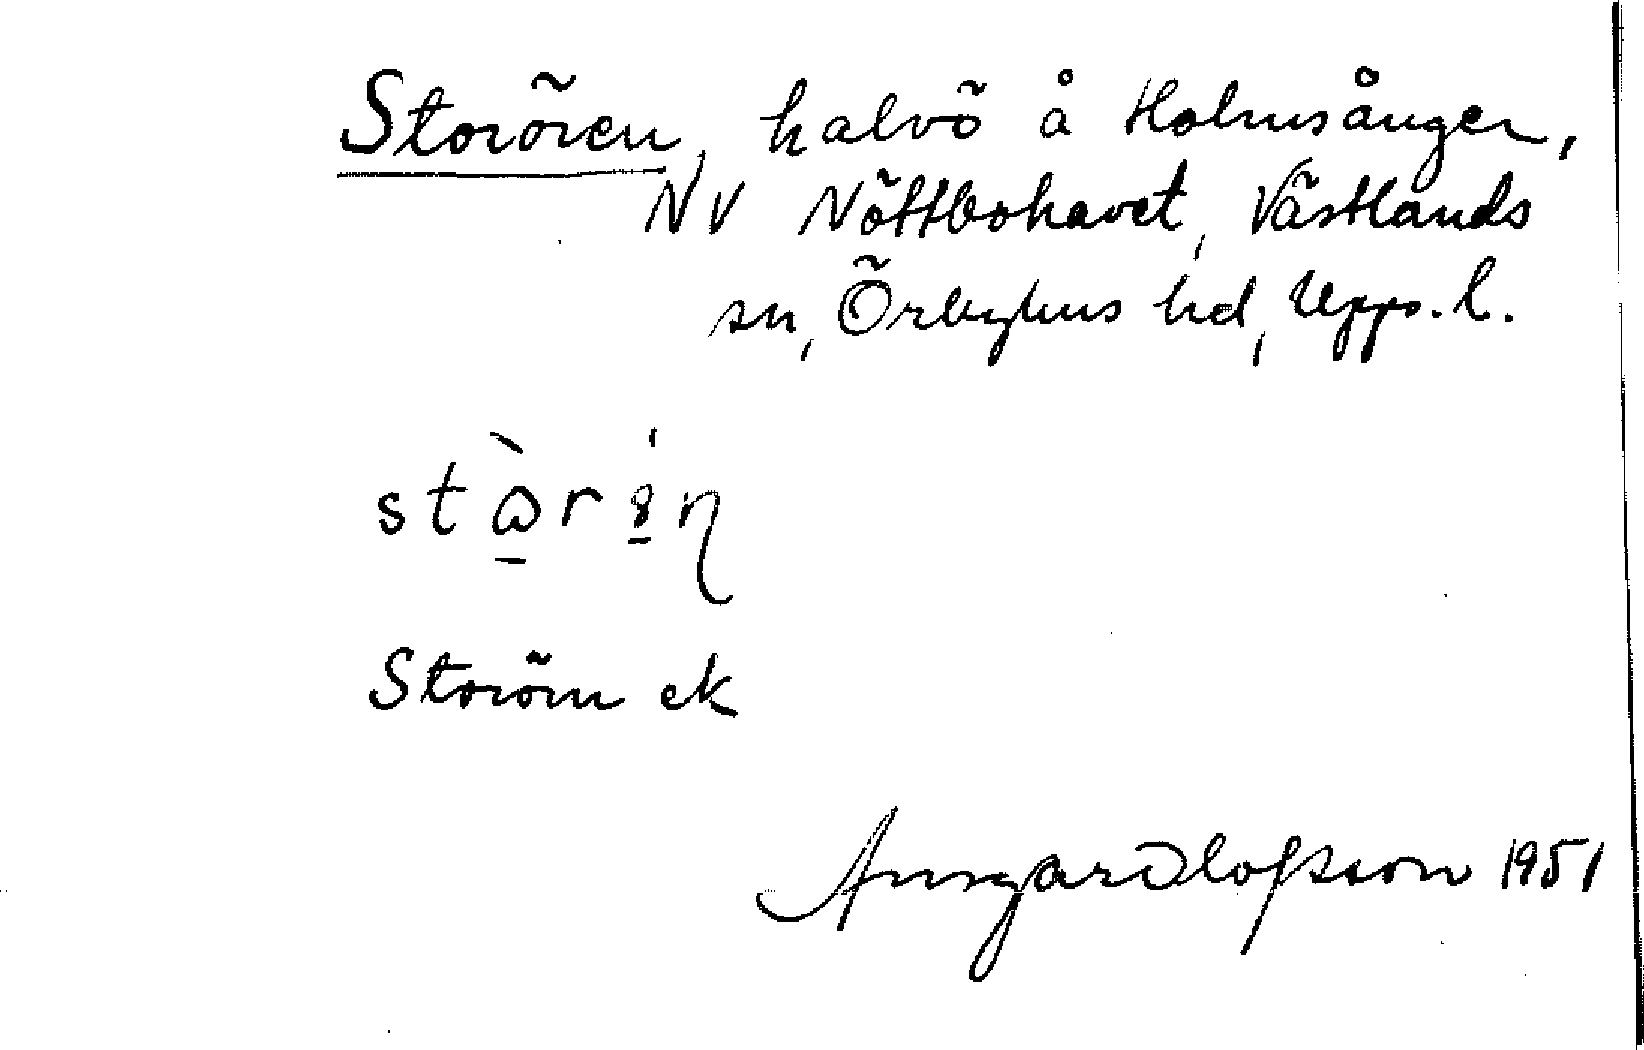 Storören, halvö å Holmsånger,
NV Nöttbohavet, Västlands
sn, Örbyhus hd, Upps. l.
Storörn ek
Ansgar Olofsson 1951